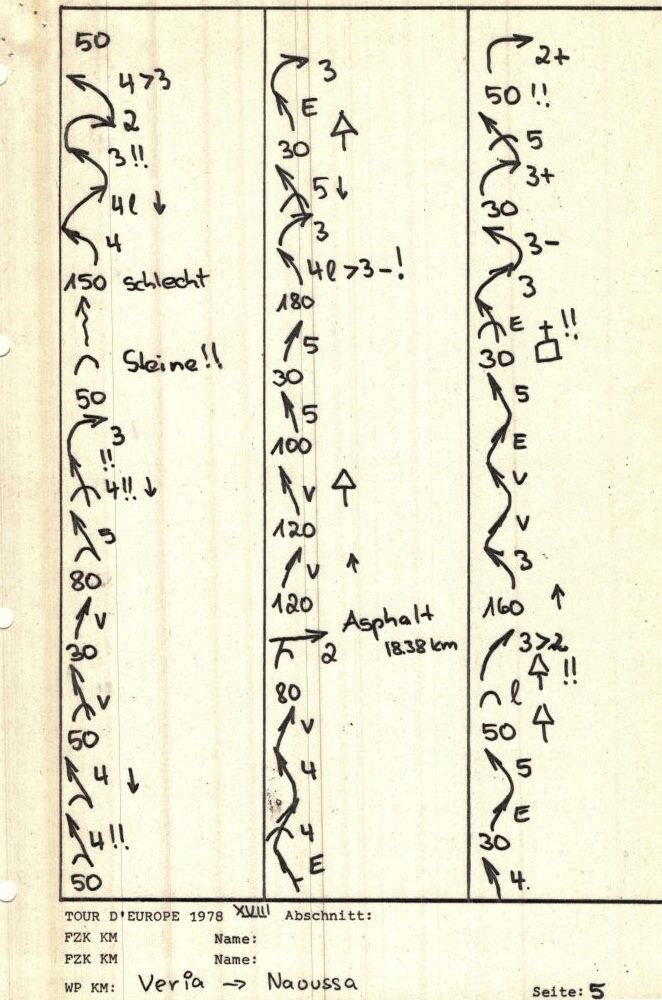 50
4>3
2
3!!
4l ↓
4
150 schlecht
Steine!!
50
3
!!
4!! ↓
5
80
V
30
V
50
4 ↓
4!!
50
3
E
30
5 ↓
3
4l>3-!
180
5
30
5
100
V
120
V ↑
120
Asphalt
18.38 km
2
80
V
4
4
E
2+
50!!
5
3+
30
3-
3
E !!
30
5
E
V
V
3
160 ↑
3>2
!!
l
50
5
E
30
4.
TOUR D'EUROPE 1978 XVIII Abschnitt:
FZK KM Name:
FZK KM Name:
WP KM: Veria → Naoussa
Seite: 5